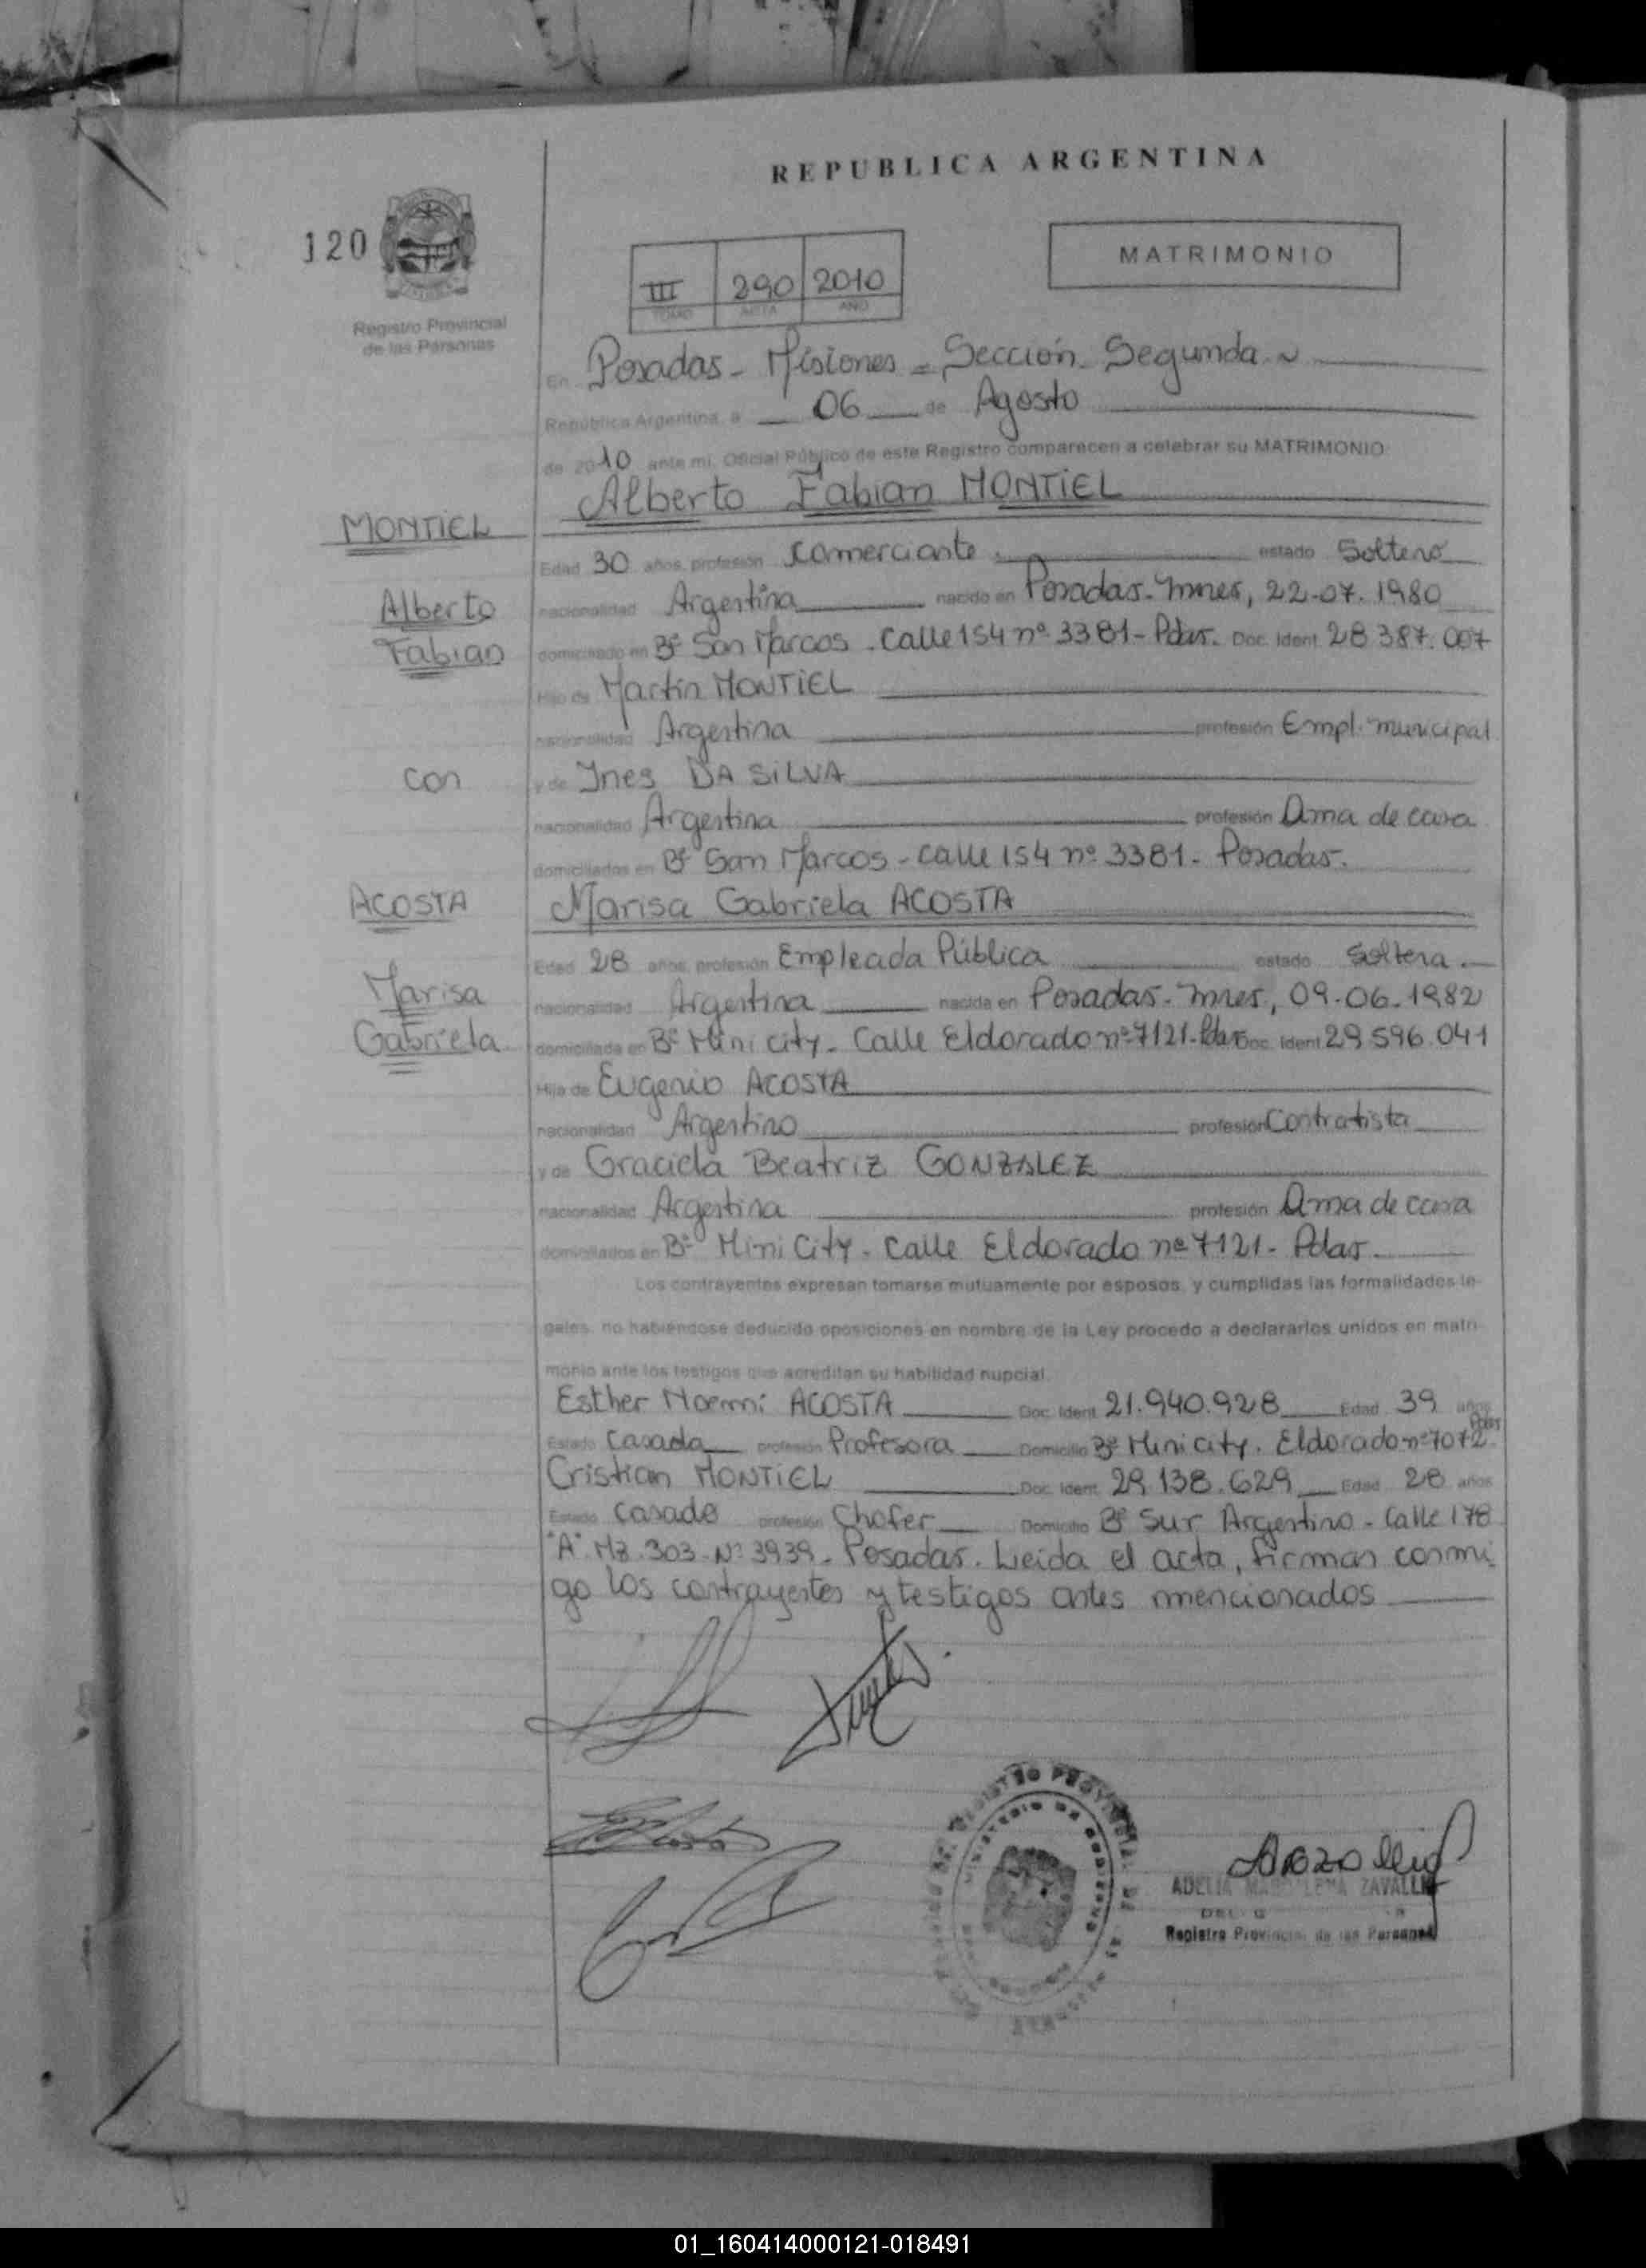 REPUBLICA ARGENTINA
120
MATRIMONIO
III 290 2010
TOMO ACTA AÑO
Registro Provincial
de las Personas
En Posadas - Misiones = Sección Segunda ~
República Argentina, a 06 de Agosto
de 2010 ante mi, Oficial Público de este Registro comparecen a celebrar su MATRIMONIO:
Alberto Fabian MONTIEL
MONTIEL
Edad 30 años, profesión Comerciante estado Soltero
Alberto
nacionalidad Argentina nacido en Posadas-Mnes, 22-07-1980
Fabian
domiciliado en Bº San Marcos - Calle 154 nº 3381 - Pdas. Doc. Ident. 28.387.007
Hijo de Martín MONTIEL
nacionalidad Argentina profesión Empl. municipal
con
y de Ines DA SILVA
nacionalidad Argentina profesión Ama de casa
domiciliados en Bº San Marcos - calle 154 nº 3381 - Posadas.
ACOSTA
Marisa Gabriela ACOSTA
Edad 28 años, profesión Empleada Pública estado Soltera.
Marisa
nacionalidad Argentina nacida en Posadas-Mnes, 09-06-1982
Gabriela
domiciliada en Bº Mini City - Calle Eldorado nº 7121 - Pdas Doc. Ident. 29.596.041
Hija de Eugenio ACOSTA
nacionalidad Argentino profesión Contratista
y de Graciela Beatriz GONZALEZ
nacionalidad Argentina profesión Ama de casa
domiciliados en Bº Mini City - Calle Eldorado nº 7121 - Pdas.
Los contrayentes expresan tomarse mutuamente por esposos, y cumplidas las formalidades le-
gales, no habiéndose deducido oposiciones en nombre de la Ley procedo a declararlos unidos en matri-
monio ante los testigos que acreditan su habilidad nupcial.
Esther Noemi ACOSTA Doc. Ident. 21.940.928 Edad 39 años
Estado Casada profesión Profesora Domicilio Bº Mini City. Eldorado nº 7072 Pdas
Cristian MONTIEL Doc. Ident. 29.138.629 Edad 28 años
Estado Casado profesión Chofer Domicilio Bº Sur Argentino - Calle 178
"A" Mz. 303 - Nº 3939 - Posadas. Leida el acta, firman conmi
go los contrayentes y testigos antes mencionados
ADELIA MAGDALENA ZAVALLA
Registro Provincial de las Personas
01_160414000121-018491